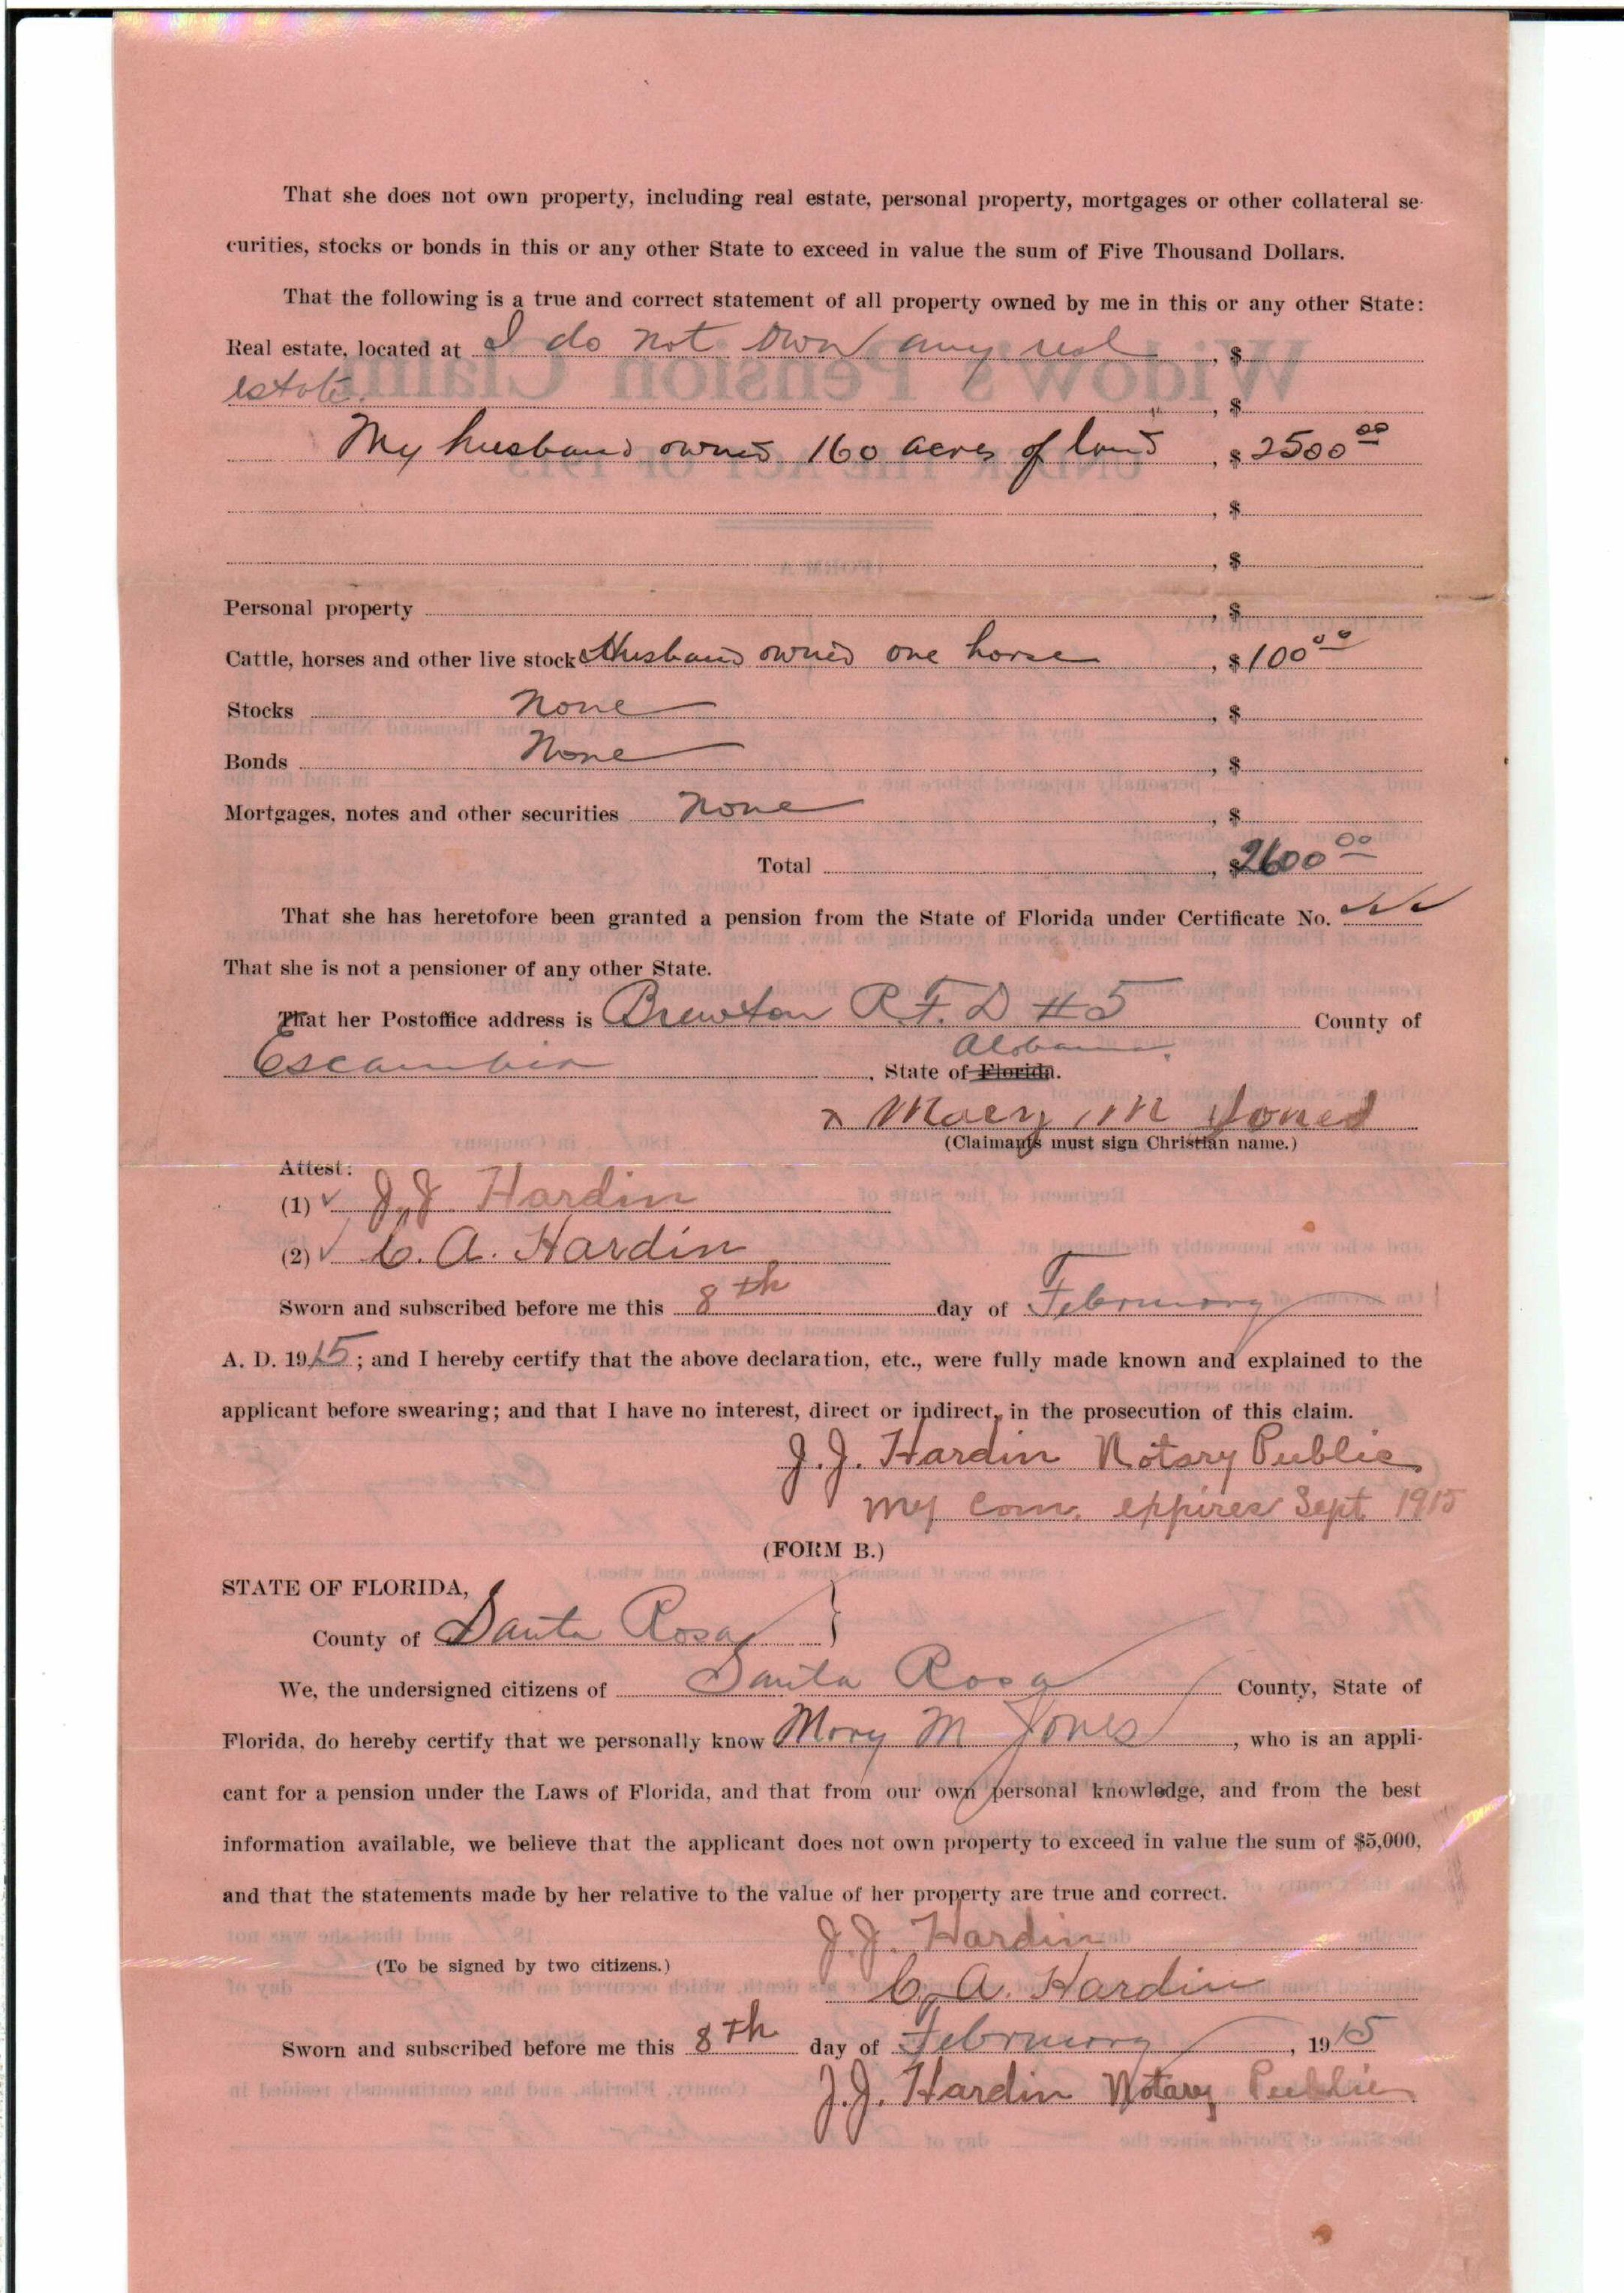 That she does not own property, including real estate, personal property, mortgages or other collateral se-
curities, stocks or bonds in this or any other State to exceed in value the sum of Five Thousand Dollars.
That the following is a true and correct statement of all property owned by me in this or any other State:
Real estate, located at I do not own any real , $
estate. , $
My husband owned 160 acres of land , $ 2500 00
, $
, $
Personal property , $
Cattle, horses and other live stock Husband owned one horse , $ 100 00
Stocks None , $
Bonds None , $
Mortgages, notes and other securities None , $
Total , $ 2600 00
That she has heretofore been granted a pension from the State of Florida under Certificate No.
That she is not a pensioner of any other State.
That her Postoffice address is Brewton R F. D # 5 County of
Escambia , State of Florida. Alabama.
x Mary M Jones
(Claimants must sign Christian name.)
Attest:
(1) J J Hardin
(2) C. A. Hardin
Sworn and subscribed before me this 8th day of February
A. D. 1915; and I hereby certify that the above declaration, etc., were fully made known and explained to the
applicant before swearing; and that I have no interest, direct or indirect, in the prosecution of this claim.
J. J. Hardin Notary Public
My Com. expires Sept. 1915
(FORM B.)
STATE OF FLORIDA,
County of Santa Rosa }
We, the undersigned citizens of Santa Rosa County, State of
Florida, do hereby certify that we personally know Mary M Jones, who is an appli-
cant for a pension under the Laws of Florida, and that from our own personal knowledge, and from the best
information available, we believe that the applicant does not own property to exceed in value the sum of $5,000,
and that the statements made by her relative to the value of her property are true and correct.
J. J. Hardin
(To be signed by two citizens.)
C. A. Hardin
Sworn and subscribed before me this 8th day of February, 1915
J. J. Hardin Notary Public